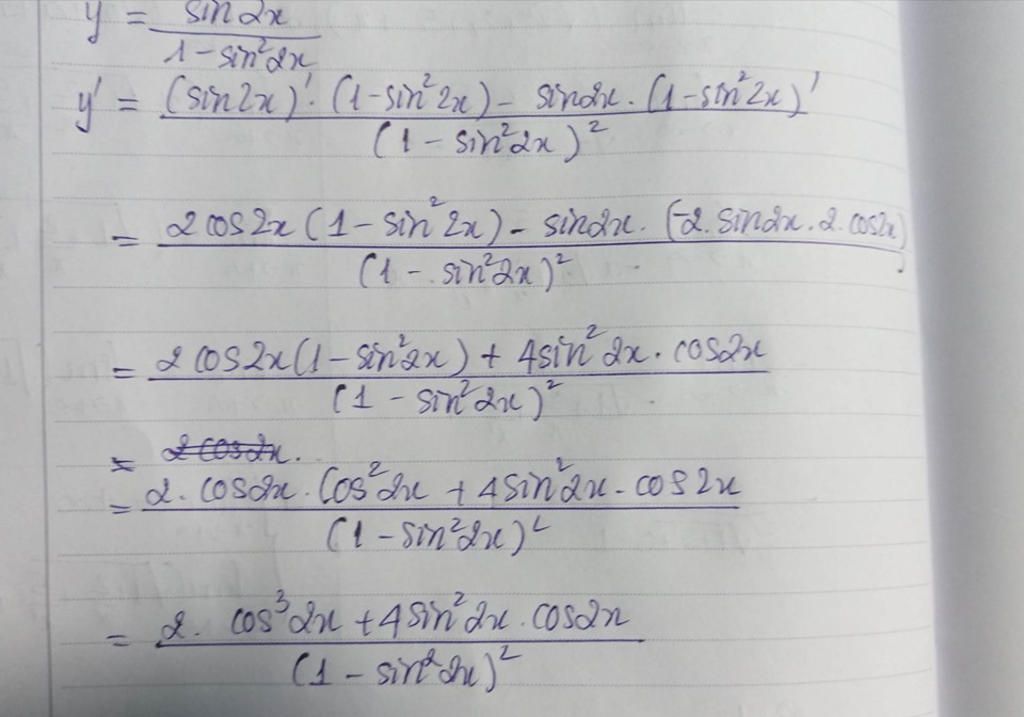 y = sin2x / 1 - sin²2x
y' = (sin2x)' . (1 - sin²2x) - sin2x . (1 - sin²2x)' / (1 - sin²2x)²
= 2 cos2x (1 - sin²2x) - sin2x . (-2 . sin2x . 2 . cos2x) / (1 - sin²2x)²
= 2 cos2x (1 - sin²2x) + 4sin²2x . cos2x / (1 - sin²2x)²
= 2 cos2x .
= 2 . cos2x . cos²2x + 4sin²2x . cos2x / (1 - sin²2x)²
= 2 . cos³2x + 4sin²2x . cos2x / (1 - sin²2x)²